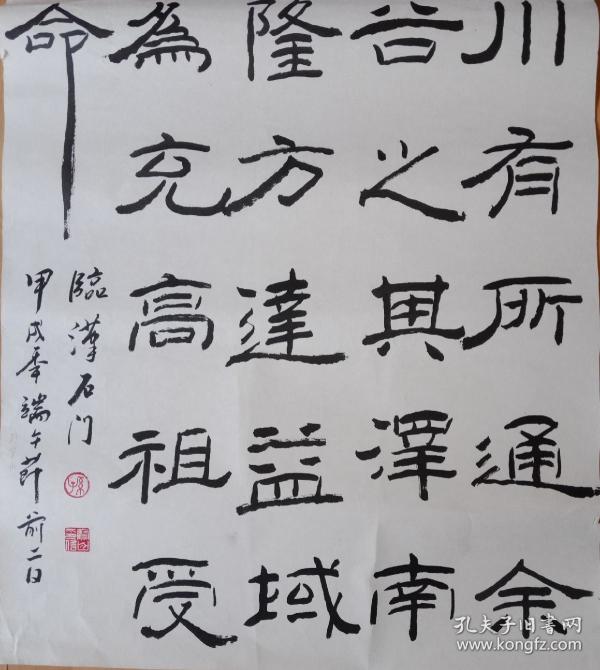 川有所通余
谷之其澤南
隆方達益域
為充高祖受
命
臨漢石门
甲戌年端午莭前二日
孫
孔夫子旧书网
www.kongfz.com